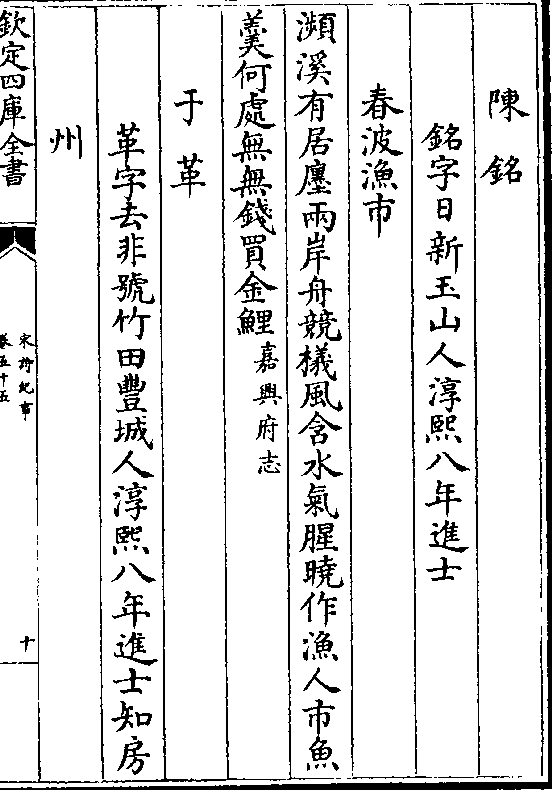 陳銘
銘字日新玉山人淳熙八年進士
春波漁市
瀕溪有居廛兩岸舟競檥風含水氣腥曉作漁人市魚
羹何處無無錢買金鯉嘉興府志
于革
革字去非號竹田豐城人淳熙八年進士知房
州
欽定四庫全書
宋詩紀事
卷五十五
十